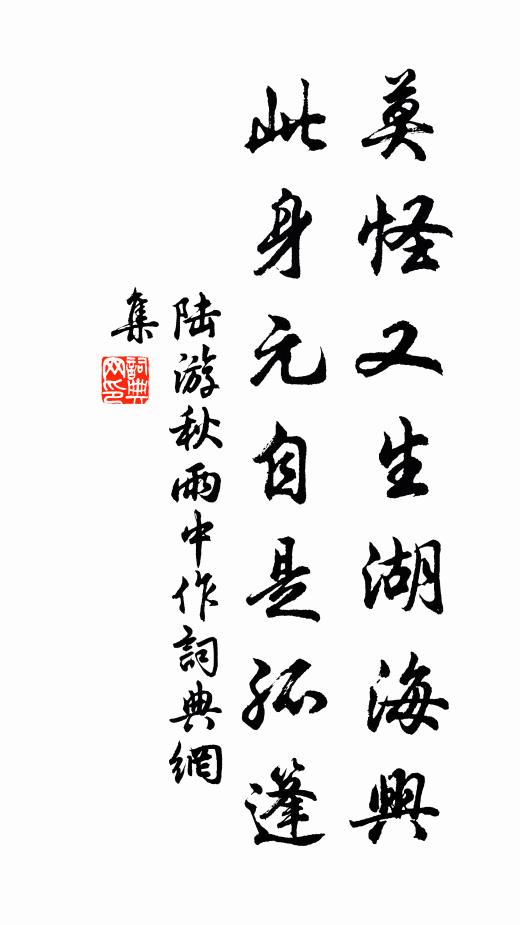 莫怪又生湖海興
此身元自是孤篷
陸游秋雨中作詞典網
集
詞典网印